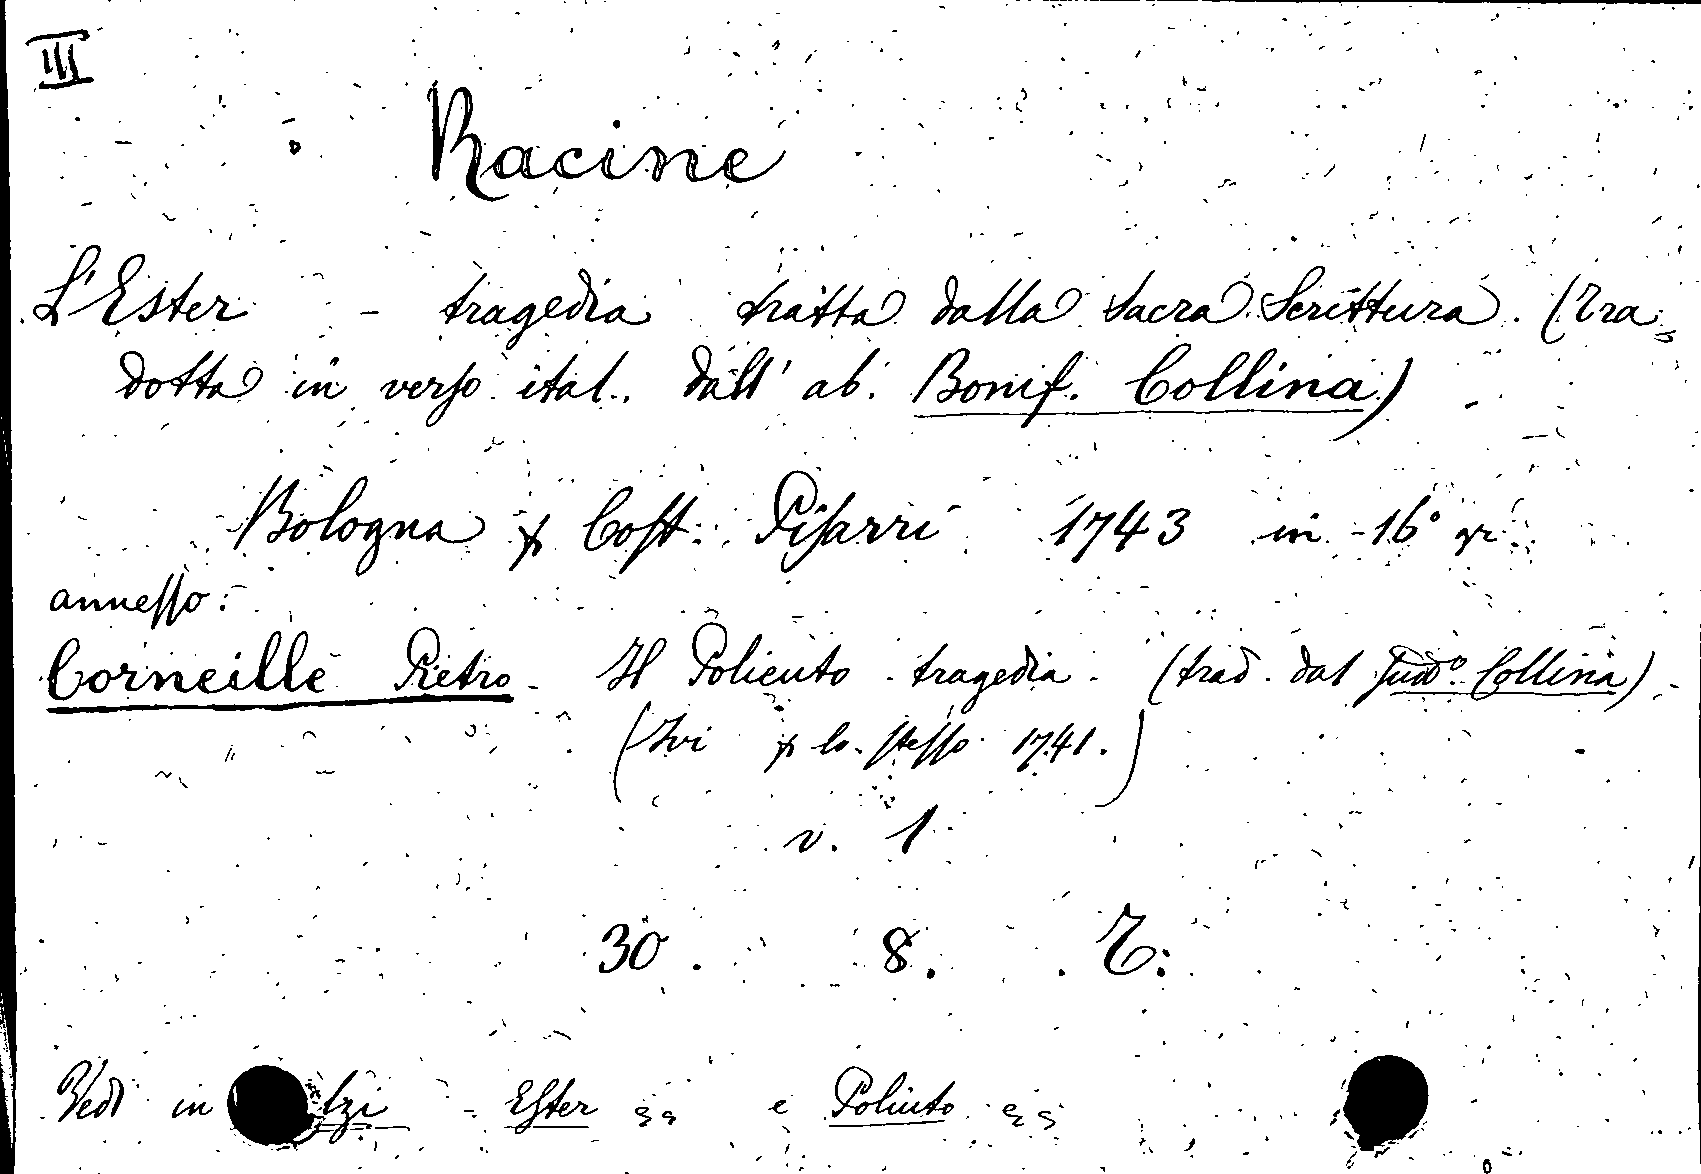 III
Racine
L'Ester - tragedia tratta dalla Sacra Scrittura. (Tra=
dotta in verso ital. dall' ab. Bonif. Collina)
Bologna p Cost. Pisarri 1743 in 16° gr.
annesso:
Corneille Pietro - Il Poliuto tragedia. (trad. dal sudd° Collina)
(Ivi p lo stesso 1741.)
v. 1
30. 8. T:
Vedi in - Ester e Poliuto